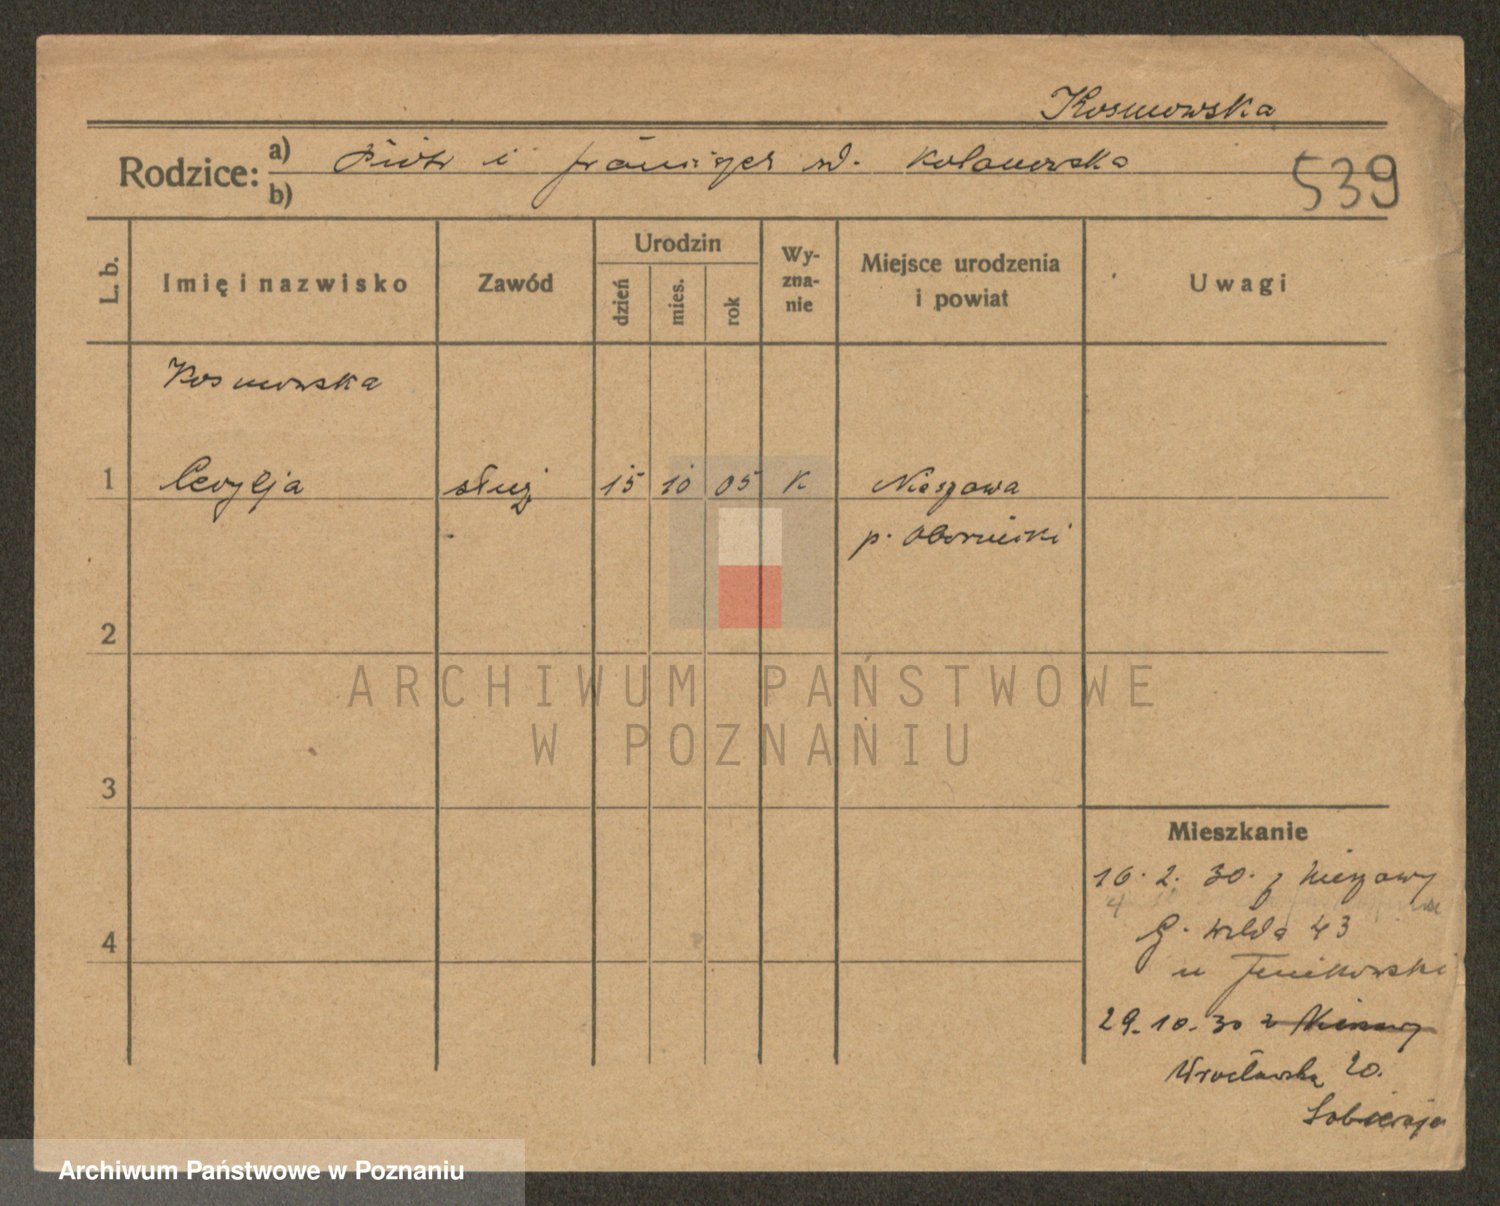 Kosmowska
Rodzice: a) Piotr i Franciszek zd. Kolanowska
b)
539
L. b.
Imię i nazwisko
Zawód
Urodzin
dzień
mies.
rok
Wy-
zna-
nie
Miejsce urodzenia
i powiat
Uwagi
Kosmowska
1 Cecylja służ 15 10 05 K Nieszawa
p. Obornicki
2
3
4
Mieszkanie
16. 2. 30. z Nieszawy
G. Wilda 43
u Jenikowski
29.10.30 z
Wrocławska 20.
Sobieraja
ARCHIWUM PAŃSTWOWE
W POZNANIU
Archiwum Państwowe w Poznaniu